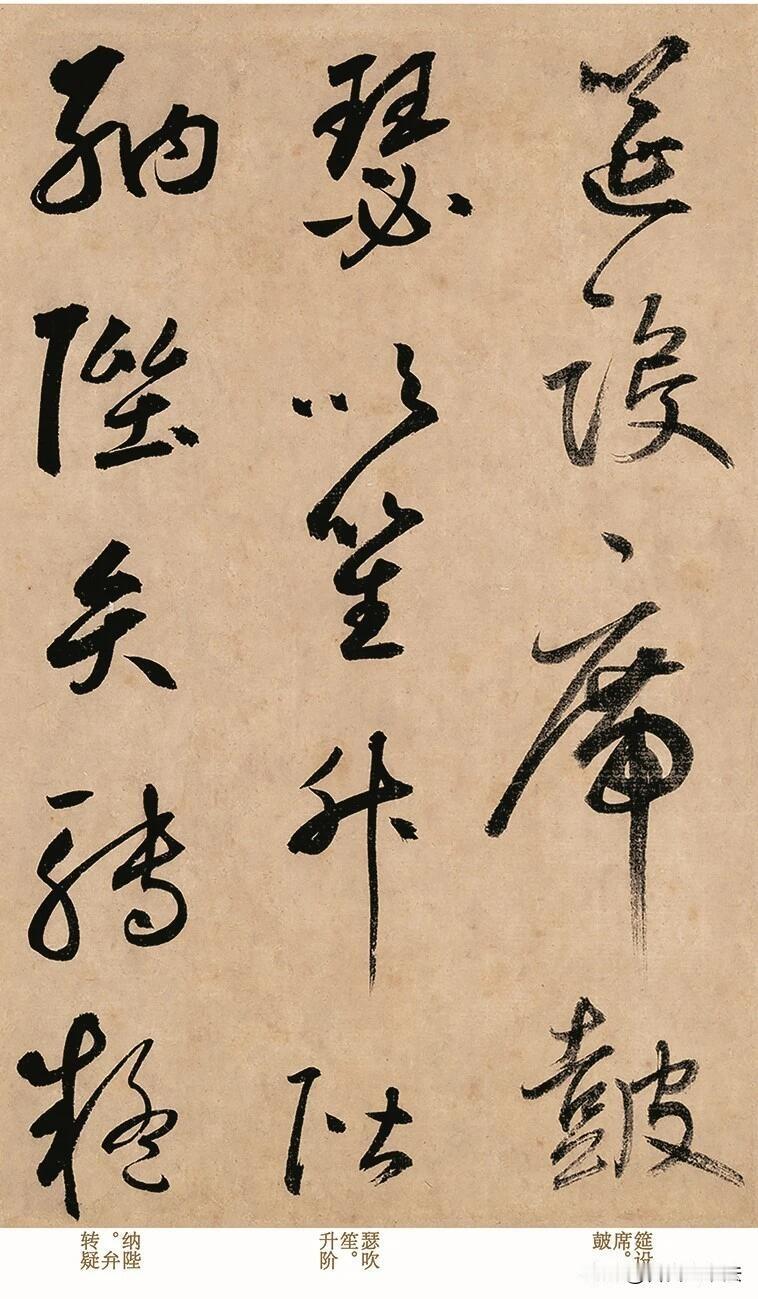 筵設席皷
瑟吹笙升階
納陛弁轉疑
筵设
席。
皷
瑟吹
笙。
升阶
纳陛
。弁
转疑